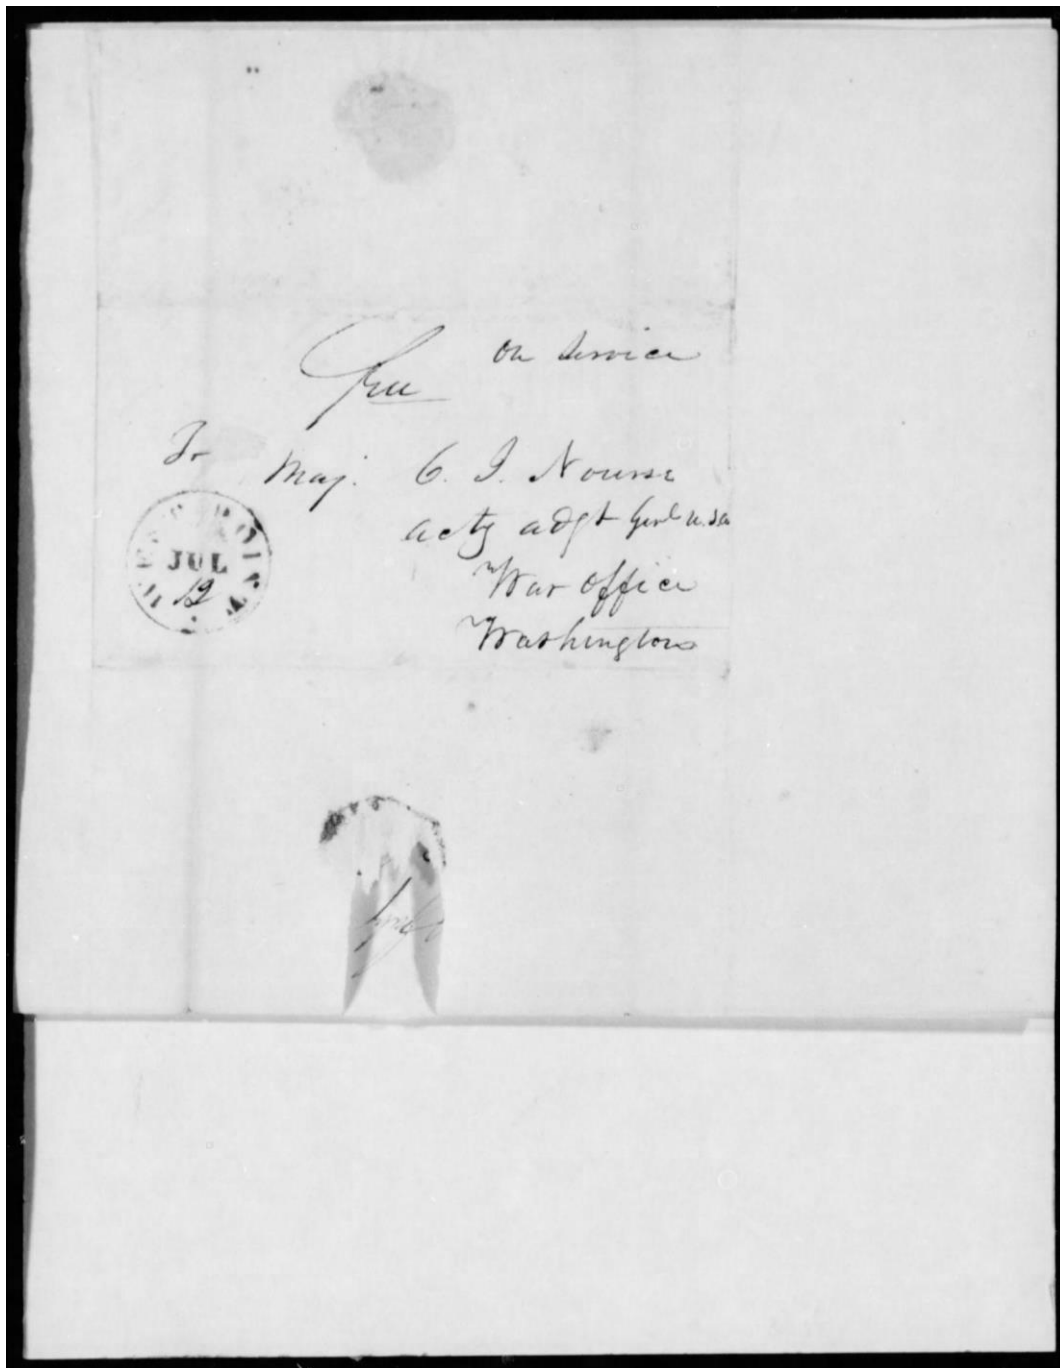 on Service
Free
To
Maj. C. J. Nourse
actg adgt Genl U.S.A
War Office
Washington
WEST POINT
JUL
12